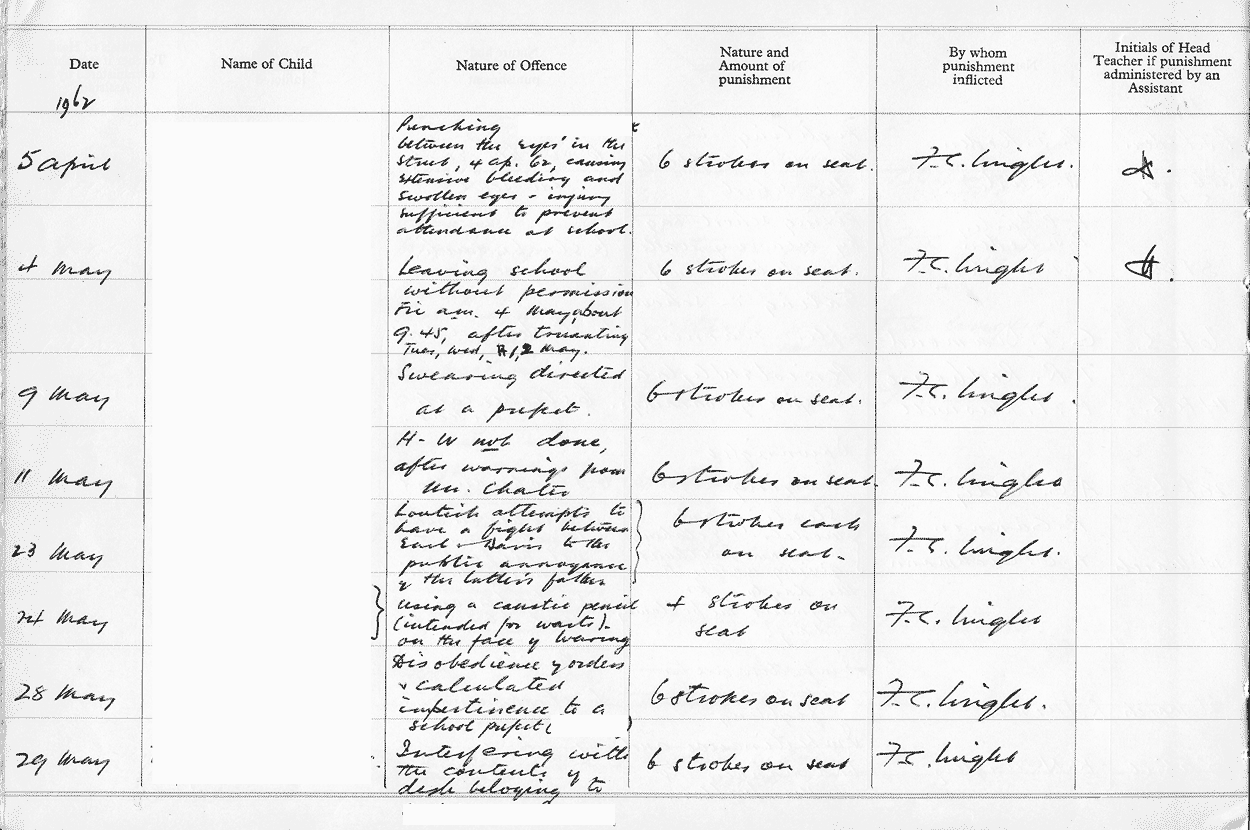 Date
Name of Child
Nature of Offence
Nature and
Amount of
punishment
By whom
punishment
inflicted
Initials of Head
Teacher if punishment
administered by an
Assistant
1962
5 April
Punching
between the eyes in the
street, 4 ap. 62, causing
extensive bleeding and
swollen eyes - injury
sufficient to prevent
attendance at school.
6 strokes on seat.
F.C.
4 May
Leaving school
without permission
Fri a.m. 4 May, about
9.45, after truanting
Tues, Wed, 1, 2 May.
6 strokes on seat.
F.C.
9 May
Swearing directed
at a prefect.
6 strokes on seat.
F.C.
11 May
H-W not done,
after warnings from
Mr.
6 strokes on seat.
F.C.
23 May
Loutish attempts to
have a fight between
Earl & Davis to the
public annoyance
of the latter's father
6 strokes each
on seat.
F.C.
24 May
Using a caustic pencil
(intended for warts)
on the face of Waring
4 strokes on
seat
F.C.
28 May
Disobedience of orders
& calculated
impertinence to a
school prefect
6 strokes on seat
F.C.
29 May
Interfering with
the contents of
desk beloging to
6 strokes on seat
F.C.